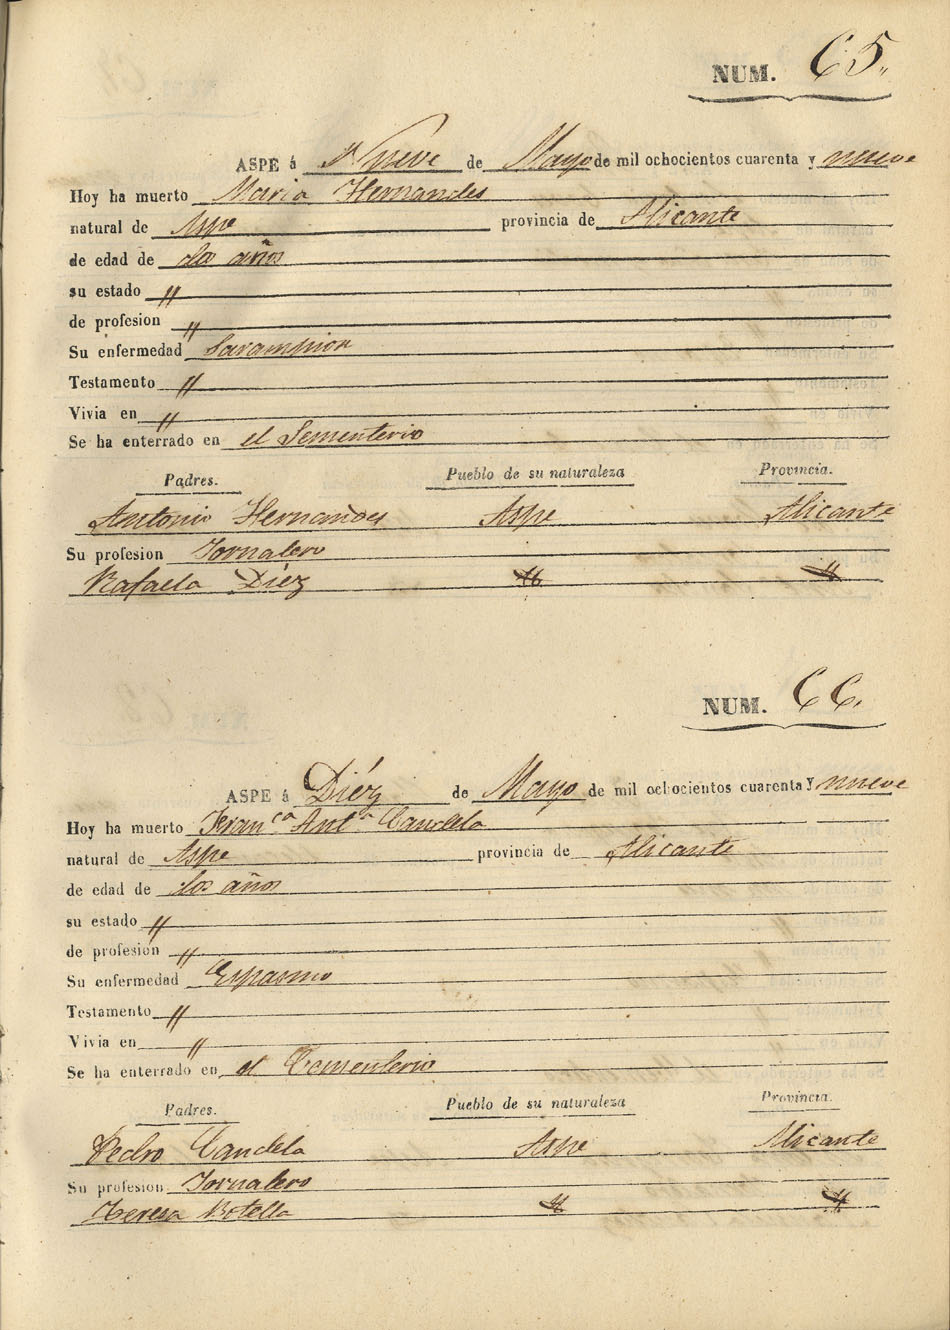 NUM. 65.
ASPE á Nueve de Mayo de mil ochocientos cuarenta y nueve
Hoy ha muerto Maria Hernandes
natural de Aspe provincia de Alicante
de edad de dos años
su estado "
de profesion "
Su enfermedad Sarampion
Testamento "
Vivia en "
Se ha enterrado en el Sementerio
Padres. Pueblo de su naturaleza Provincia.
Antonio Hernandes Aspe Alicante
Su profesion Jornalero
Rafaela Diez " "
NUM. 66.
ASPE á Diéz de Mayo de mil ochocientos cuarenta y nueve
Hoy ha muerto Franca Anta Candela
natural de Aspe provincia de Alicante
de edad de dos años
su estado "
de profesion "
Su enfermedad Espasmo
Testamento "
Vivia en "
Se ha enterrado en el Cementerio
Padres. Pueblo de su naturaleza Provincia.
Pedro Candela Aspe Alicante
Su profesion Jornalero
Teresa Botella " "